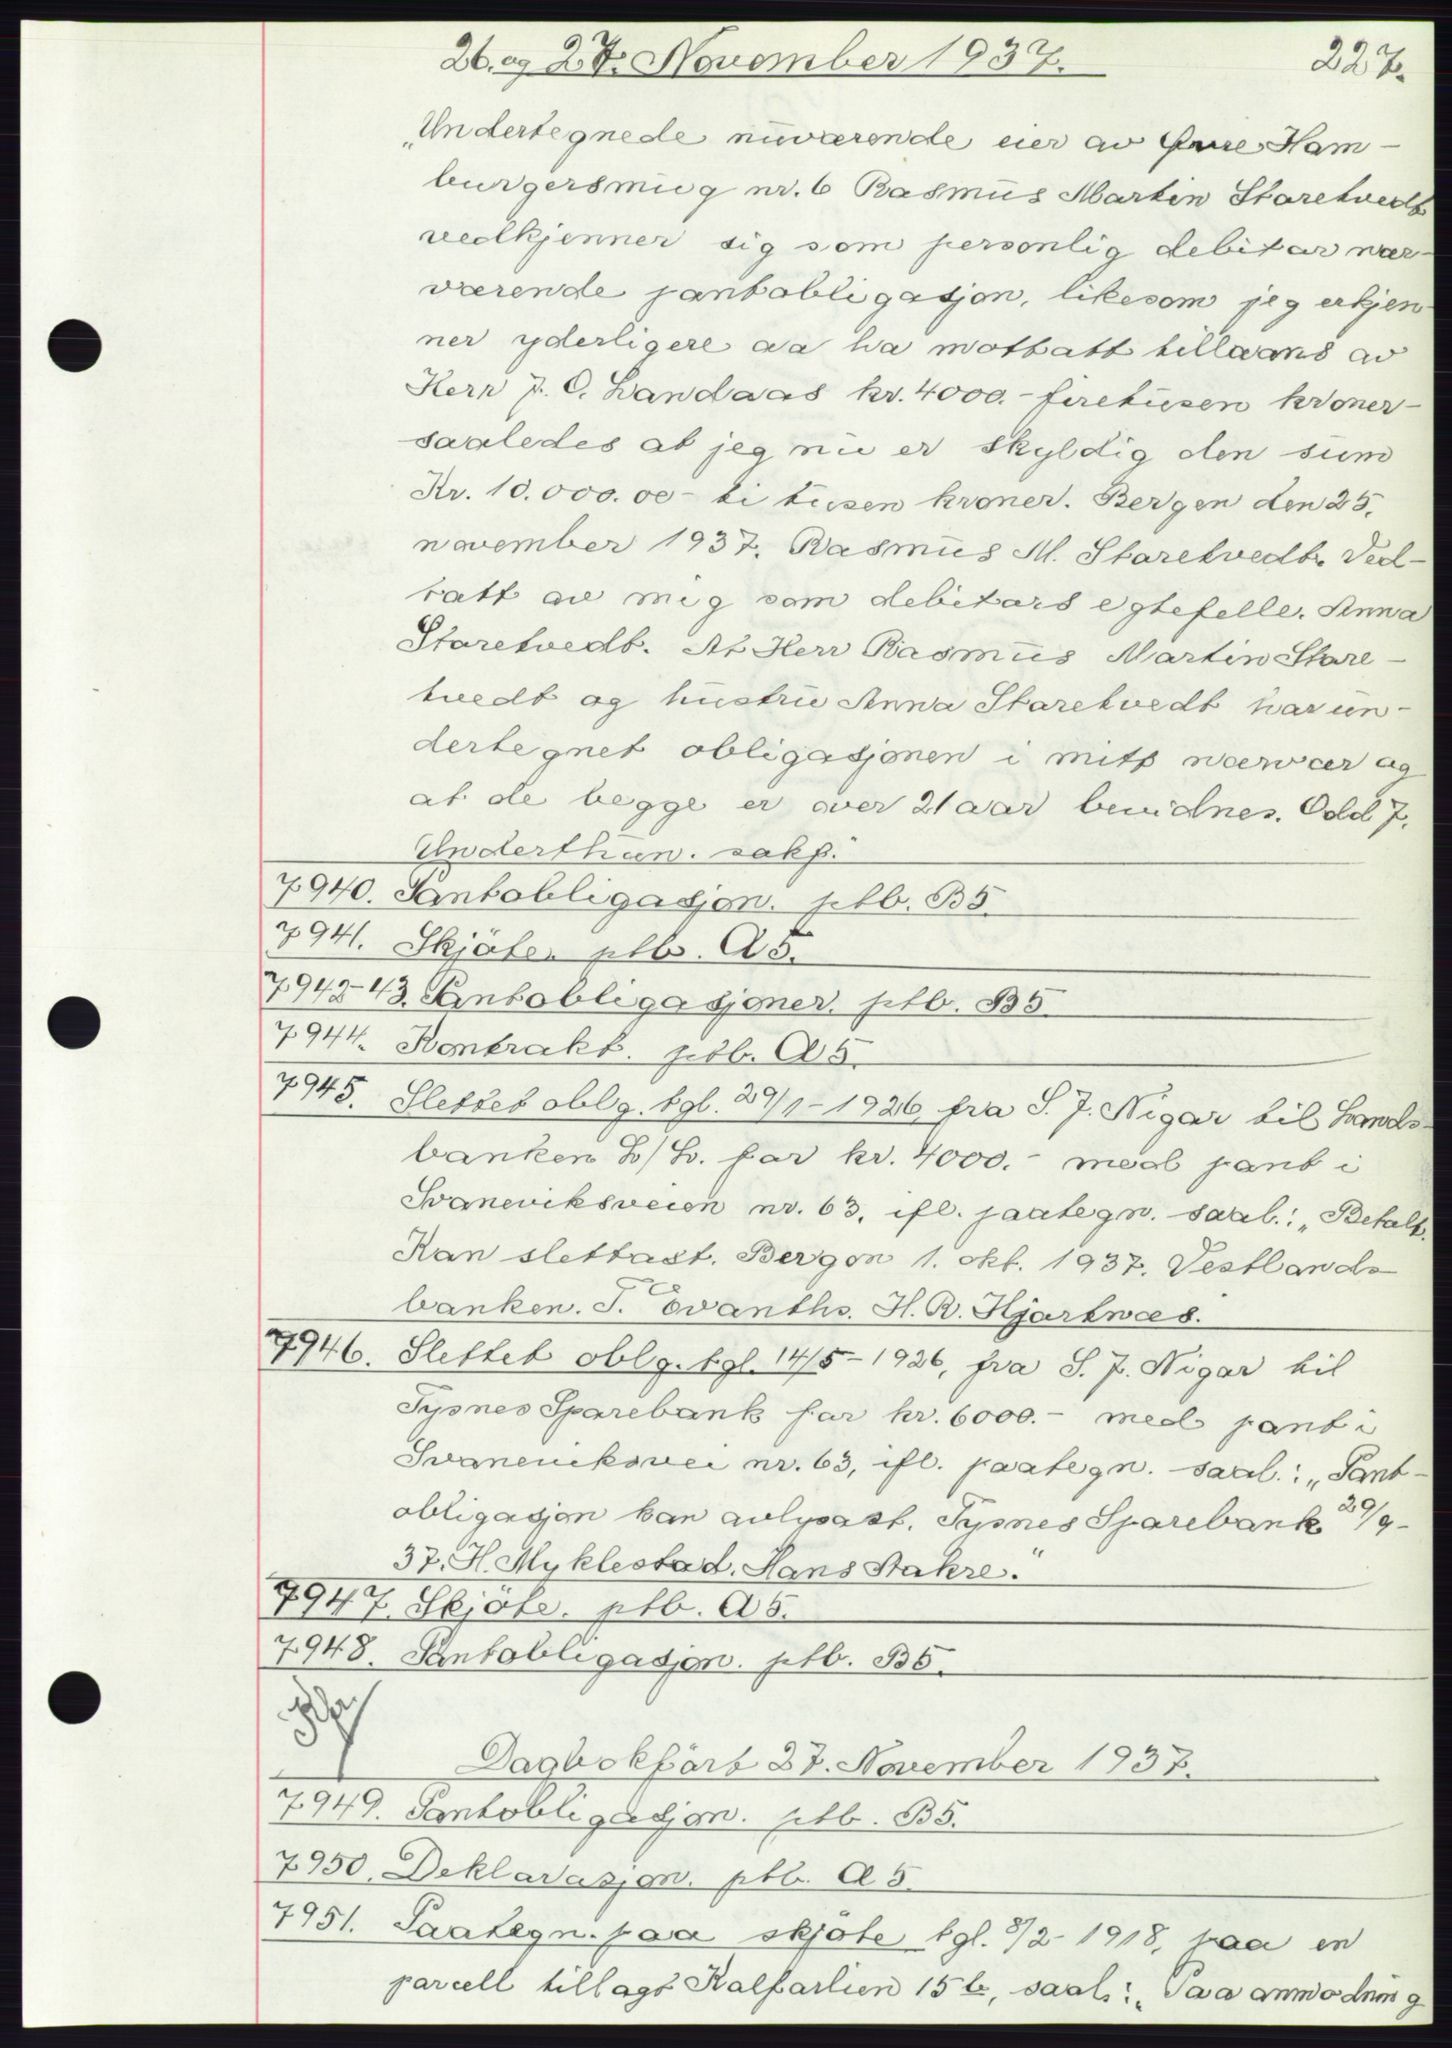 26. og 27. November 1937. 227.
„Undertegnede nuværende eier av Øvre Ham-
burgersmug nr. 6 Rasmus Martin Staretvedt
vedkjenner sig som personlig debitor nær-
værende pantobligasjon, likesom jeg erkjen-
ner yderligere aa ha mottatt tillaans av
Herr J. O. Landaas kr. 4000.- firetusen kroner-
saaledes at jeg nu er skyldig den sum
Kr. 10.000.00 - ti tusen kroner. Bergen den 25.
november 1937. Rasmus M. Staretvedt. Ved-
tatt av mig som debitors egtefelle. Anna
Staretvedt. At Herr Rasmus Martin Stare-
tvedt og hustru Anna Staretvedt har un-
dertegnet obligasjonen i mitt nærvær og
at de begge er over 21 aar bevidnes. Odd J.
Underthun. sakf."
7940. Pantobligasjon. ptb. B5.
7941. Skjöte. ptb. A5.
7942-43. Pantobligasjoner. ptb. B5.
7944. Kontrakt. ptb. A5.
7945. Slettet oblg. tgl. 29/1-1926, fra S. J. Nigar til Lands-
banken L/L. for kr. 4000.- med pant i
Svaneviksveien nr. 63, ifl. paategn. saal.: „Betalt.
Kan slettast. Bergen 1. okt. 1937. Vestlands-
banken. T. Evanths. H. R. Hjartnæs.
7946. Slettet oblg. tgl. 14/5-1926, fra S. J. Nigar til
Tysnes Sparebank for kr. 6000.- med pant i
Svaneviksvei nr. 63, ifl. paategn. saal.: „Pant-
obligasjon kan avlysast. Tysnes Sparebank 29/9-
37. H. Myklestad. Hans Aakre."
7947. Skjöte. ptb. A5.
7948. Pantobligasjon. ptb. B5.
Dagbokfört 27. November 1937.
7949. Pantobligasjon. ptb. B5.
7950. Deklarasjon. ptb. A5.
7951. Paategn. paa skjöte tgl. 8/2-1918, paa en
parcell tillagt Kalfarlien 15b, saal.: „Paa anmodning